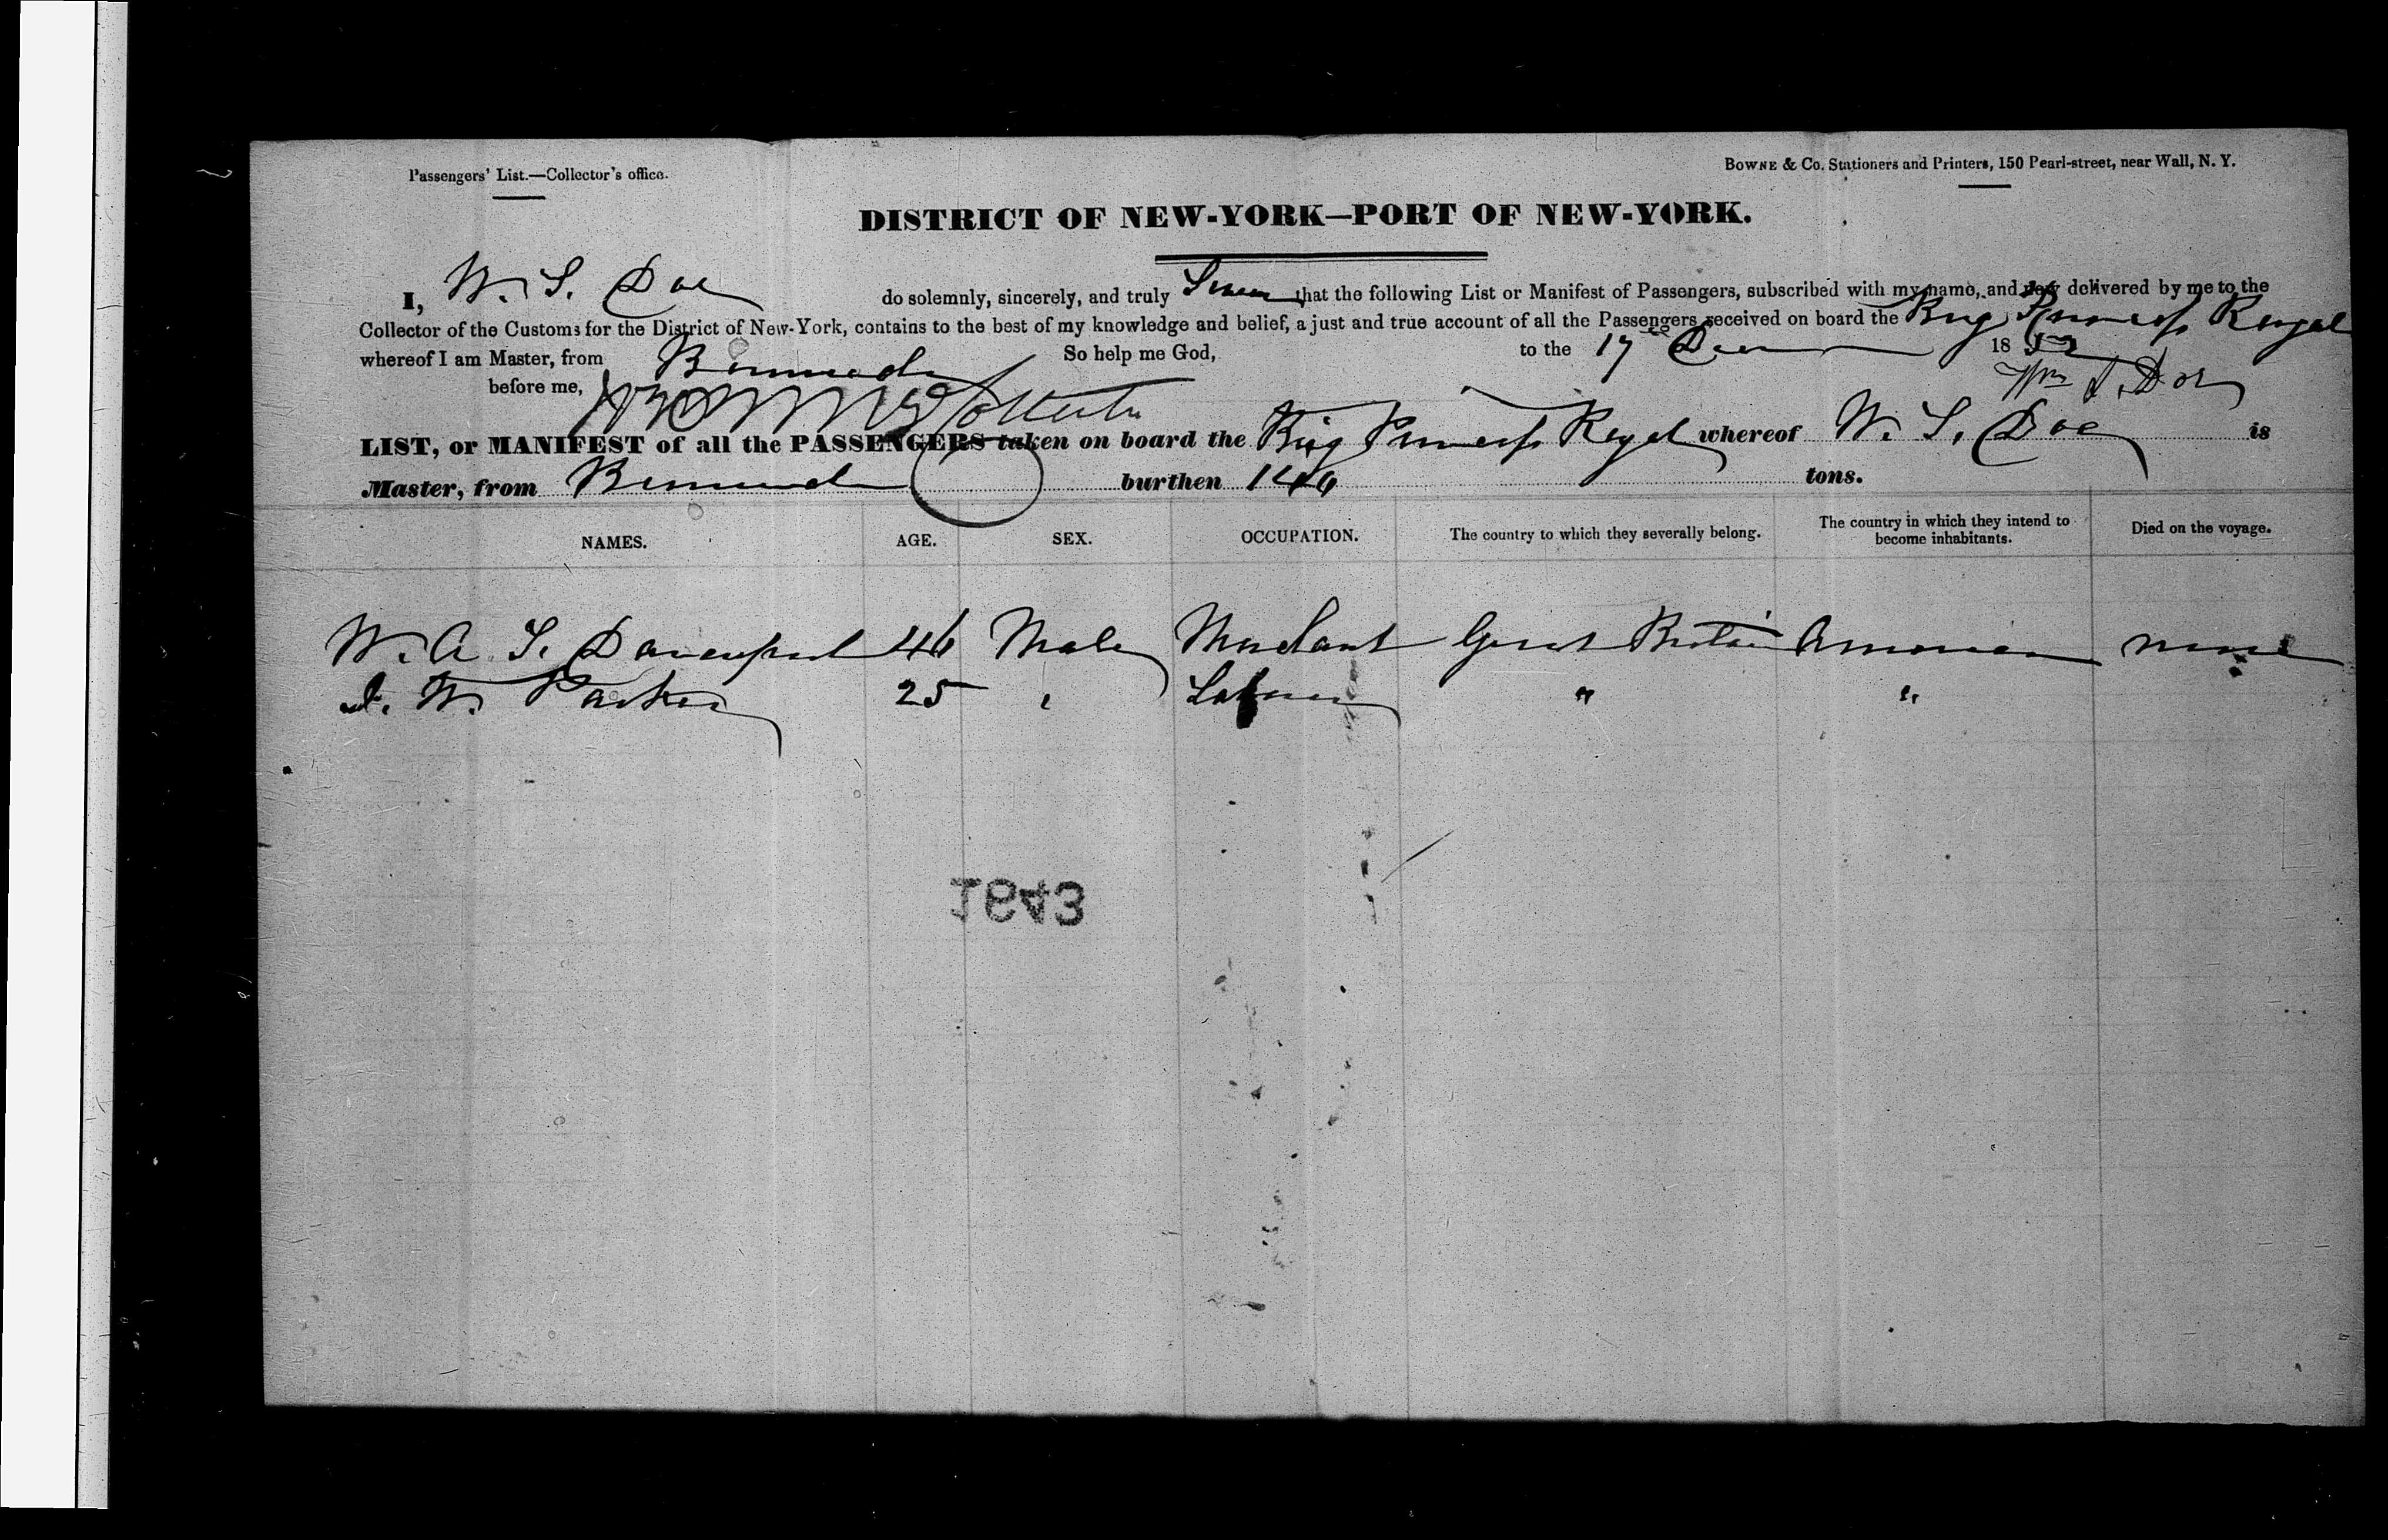 Passengers' List.—Collector's office.
BOWNE & Co. Stationers and Printers, 150 Pearl-street, near Wall, N. Y.
DISTRICT OF NEW-YORK—PORT OF NEW-YORK.
I, W. S. Doe do solemnly, sincerely, and truly Swear that the following List or Manifest of Passengers, subscribed with my name, and now delivered by me to the
Collector of the Customs for the District of New-York, contains to the best of my knowledge and belief, a just and true account of all the Passengers received on board the Brig Princess Royal
whereof I am Master, from Bermuda So help me God, to the 17 Dec 1852
before me, Wm S. Doe
LIST, or MANIFEST of all the PASSENGERS taken on board the Brig Princess Royal whereof W. S. Doe is
Master, from Bermuda burthen 146 tons.
NAMES. AGE. SEX. OCCUPATION. The country to which they severally belong. The country in which they intend to become inhabitants. Died on the voyage.
W. A. S. Davenport 46 Male Merchant Great Britain American none
J. W. Parker 25 " Labourer " "
1843